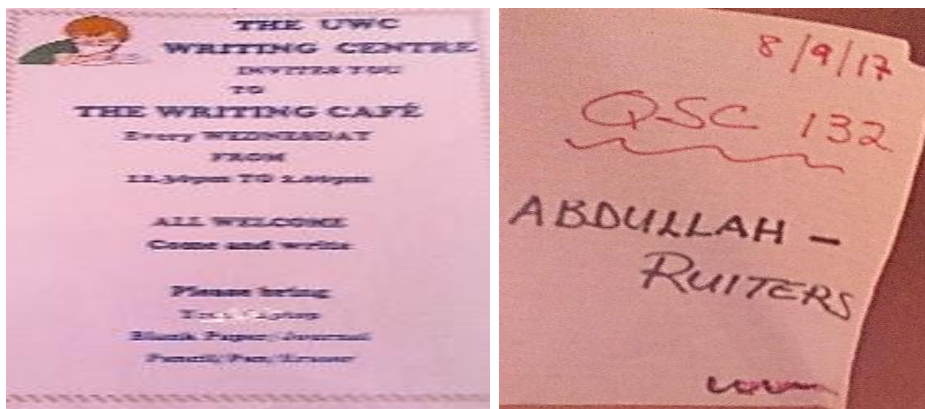 THE UWC
WRITING CENTRE
INVITES YOU
TO
THE WRITING CAFÉ
Every WEDNESDAY
FROM
12.30pm TO 2.00pm
ALL WELCOME
Come and write
Please bring
Your Laptop
Blank Paper/Journal
Pencil/Pen/Eraser
8/9/17
QSC 132
ABDULLAH -
RUITERS